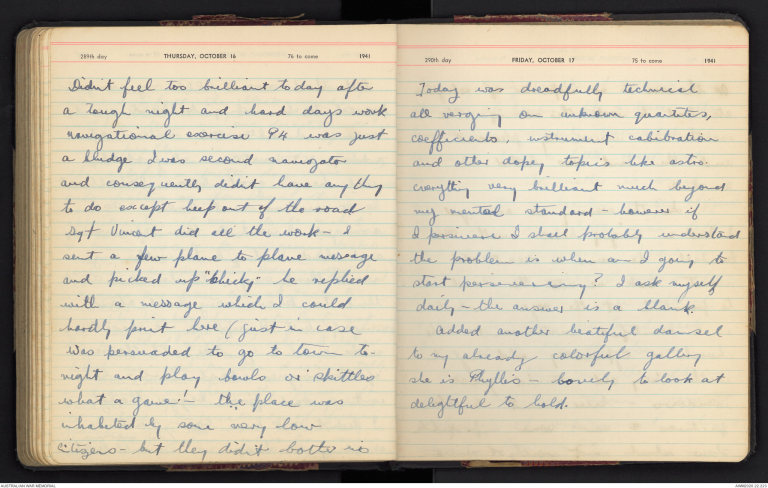 289th day THURSDAY, OCTOBER 16 76 to come 1941
Didn't feel too brilliant today after
a tough night and hard days work
navigational exercise 94 was just
a bludge I was second navigator
and consequently didn't have anything
to do except keep out of the road
Sgt Vincent did all the work - I
sent a few plane to plane message
and picked up "chick" - he replied
with a message which I could
hardly print here (just in case
Was persuaded to go to town to-
night and play bowls or skittles
what a game! - the place was
inhabited by some very low
citizens - but they didn't bother us
290th day FRIDAY, OCTOBER 17 75 to come 1941
Today was dreadfully technical
all verging on unknown quantites,
coefficients, instrument calibration
and other dopey topics like astro.
everything very brilliant much beyond
my mental standard - however if
I persivere I shall probably understand
the problem is when am I going to
start persevereing? I ask myself
daily - the answer is a blank.
Added another beatiful damsel
to my already colorful gallery
she is Phyllis - lovely to look at
delightful to hold.
AUSTRALIAN WAR MEMORIAL